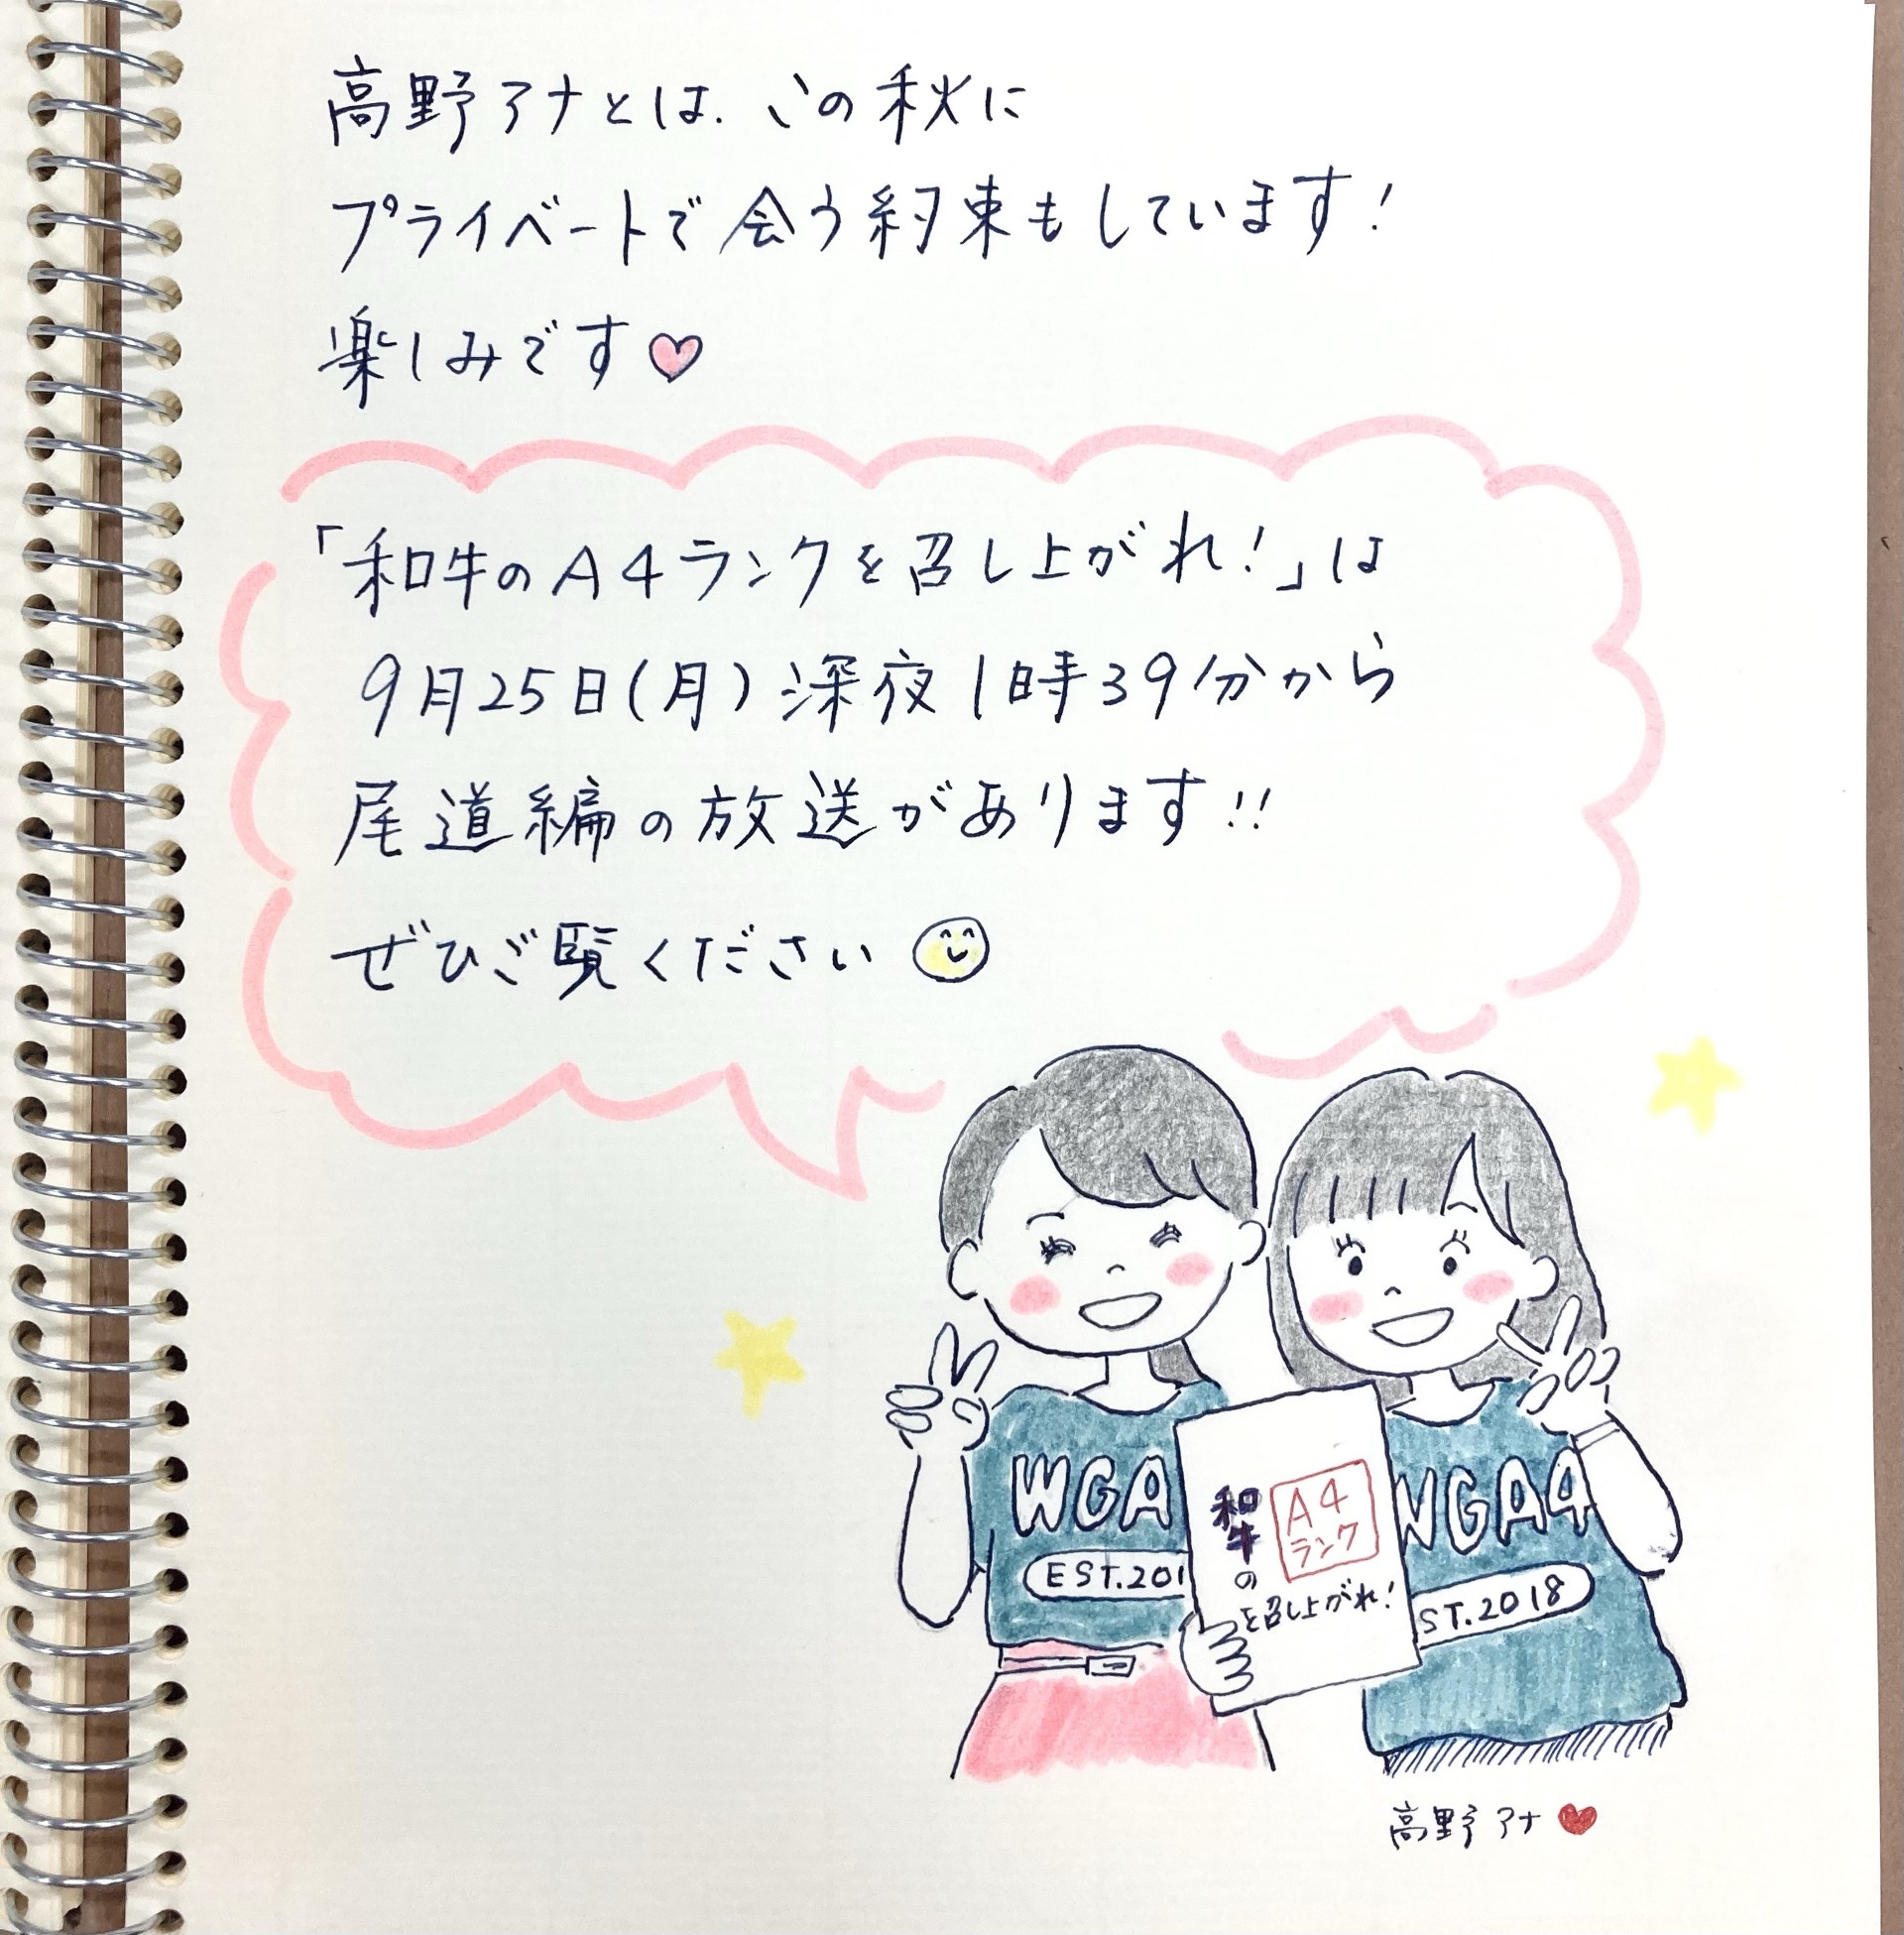 高野アナとは、この秋に
プライベートで会う約束もしています!
楽しみです♡
「和牛のA4ランクを召し上がれ!」は
9月25日(月)深夜1時39分から
尾道編の放送があります!!
ぜひご覧ください
WGA
EST.201
和牛の
A4
ランク
を召し上がれ!
WGA4
ST.2018
高野アナ♥